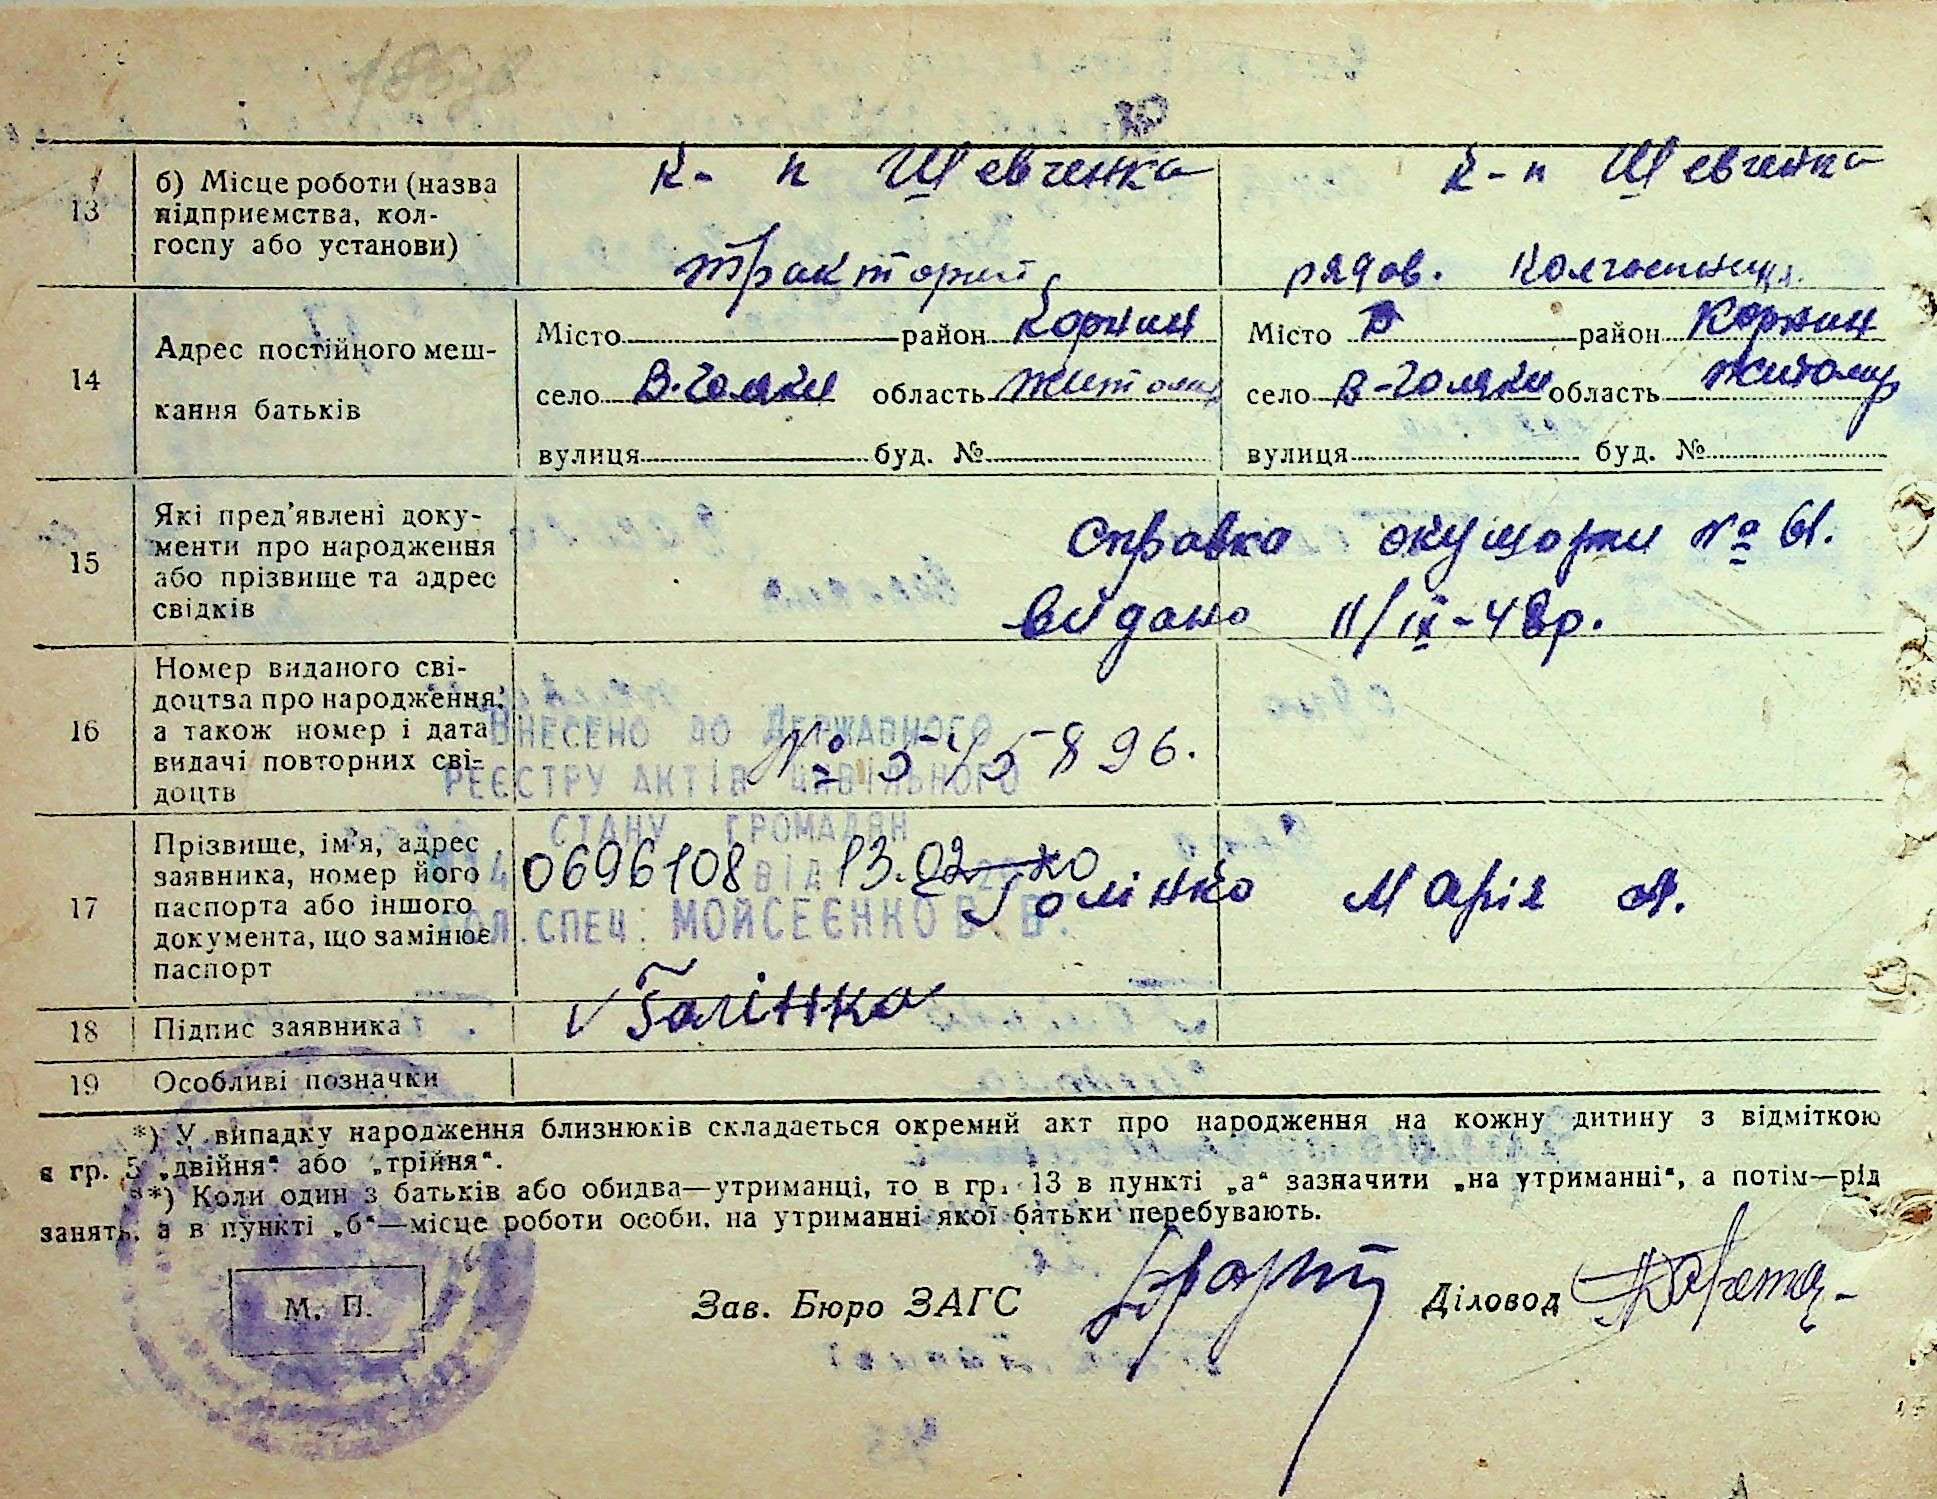 13
б) Місце роботи (назва
підприємства, кол-
госпу або установи)
к-п Шевченка
тракторист
к-п Шевченка
рядов. колгоспниця.
14
Адрес постійного меш-
кання батьків
Місто район Корнин
село В-Голяки область Житомир
вулиця буд. №
Місто район Корнин
село В-Голяки область Житомир
вулиця буд. №
15
Які пред’явлені доку-
менти про народження
або прізвище та адрес
свідків
Справка окушорки № 61.
видано 11/ІХ-48р.
16
Номер виданого сві-
доцтва про народження,
а також номер і дата
видачі повторних сві-
доцтв
№ 545896.
ВНЕСЕНО ДО ДЕРЖАВНОГО
РЕЄСТРУ АКТІВ ЦИВІЛЬНОГО
СТАНУ ГРОМАДЯН
0696108 ВІД 13.02.2020
ГОЛ.СПЕЦ. МОЙСЕЄНКО В. В.
17
Прізвище, ім’я, адрес
заявника, номер його
паспорта або іншого
документа, що замінює
паспорт
Голінко Марія А.
18
Підпис заявника
Галінка
19
Особливі позначки
*) У випадку народження близнюків складається окремий акт про народження на кожну дитину з відміткою
в гр. 5 „двійня“ або „трійня“.
**) Коли один з батьків або обидва—утриманці, то в гр. 13 в пункті „а“ зазначити „на утриманні“, а потім—рід
занять, а в пункті „б“—місце роботи особи, на утриманні якої батьки перебувають.
М. П.
Зав. Бюро ЗАГС
Діловод